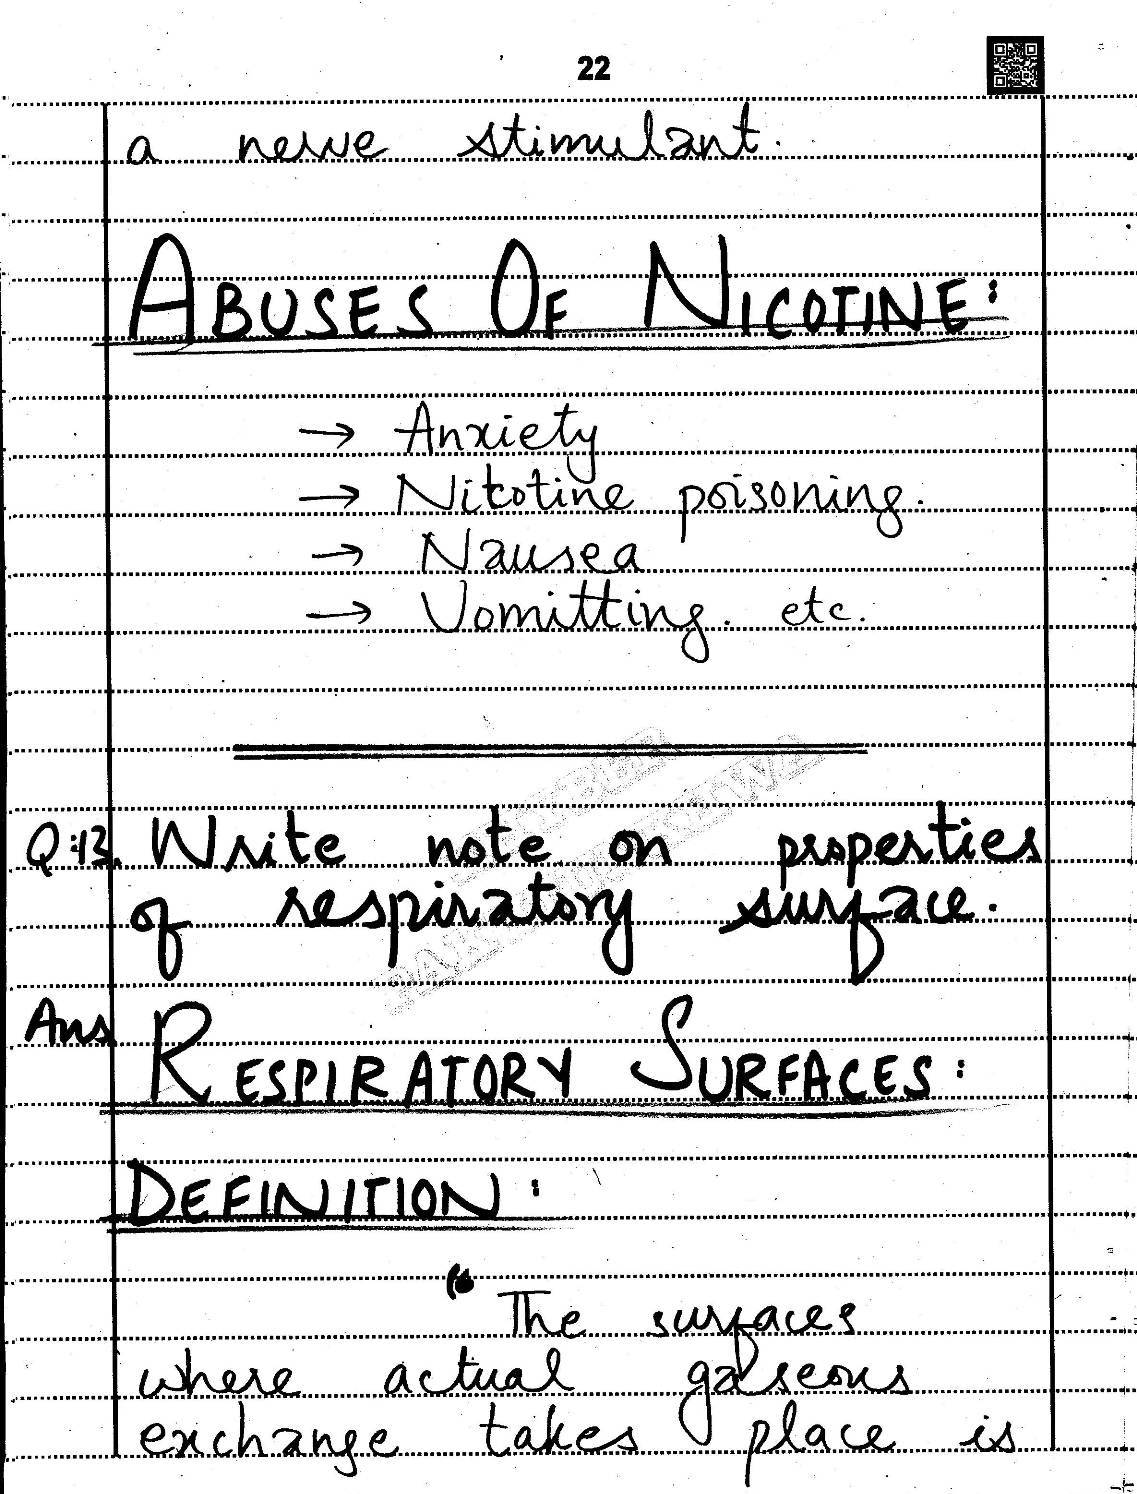 22
a nerve stimulant.
ABUSES OF NICOTINE:
→ Anxiety
→ Nicotine poisoning.
→ Nausea
→ Vomitting. etc.
Q:13. Write note on properties
of respiratory surface.
Ans RESPIRATORY SURFACES:
DEFINITION:
“The surfaces
where actual gaseous
exchange takes place is